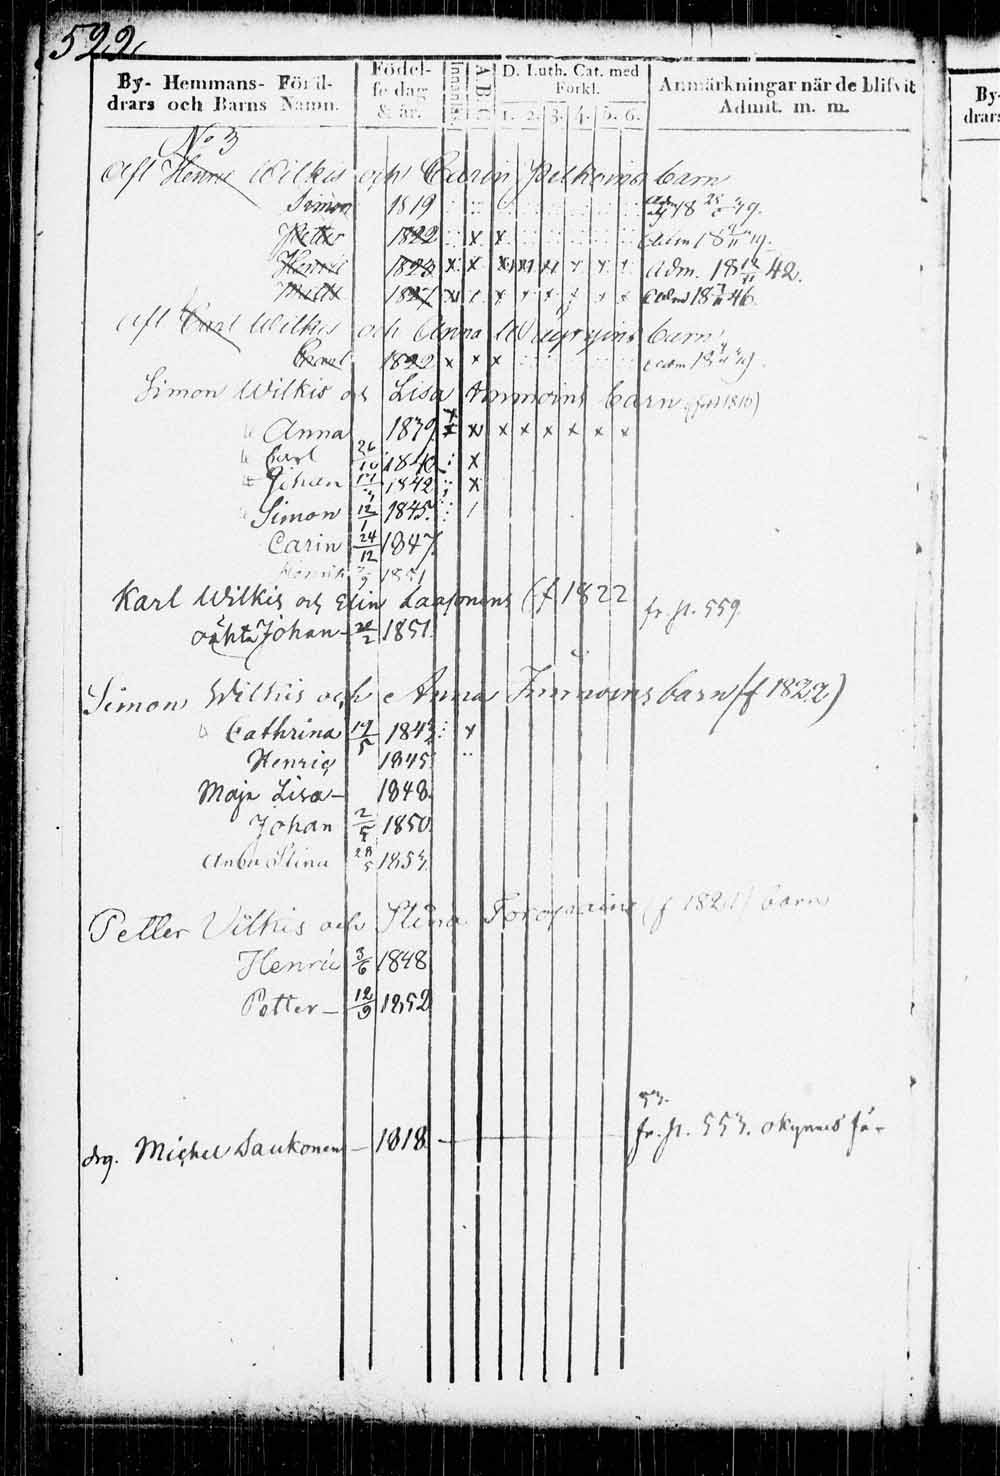 522
By- Hemmans- Föräl-
drars och Barns Namn.
Födel-
se dag
& år.
Innanläs.
A B C
D. Luth. Cat. med
Förkl.
1. 2. 3. 4. 5. 6.
Anmärkningar när de blifvit
Admit. m. m.
By-
drars
No 3
Aft Henric Wilkis och Carin barn
Simon 1819
Petter 1822
Henric 1823 Adm. 18 42.
Matts 1827 Adm 18 46.
Aft Carl Wilkis och Anna barn
Carl 1822
Simon Wilkis och Lisa Immoins barn
Anna 1839
Carl 26/10 1840
Johan 1842
Simon 12/1 1845.
Carin 24/12 1847
Henrik 1851
Karl Wilkis och Elin Laaponens (f 1822 fr. p. 559.
oäkta Johan - 1851.
Simon Wilkis och Anna barn (f 1822)
Cathrina 19/5 1843
Henric 1845
Maja Lisa - 1848.
Johan 2/5 1850
Anna Stina 28/5 1853.
Petter Vilkis och Stina Toropainens barn
Henric 3/6 1848
Petter - 12/9 1852
53.
drg. Michel Saukonen - 1818. fr. p. 553.